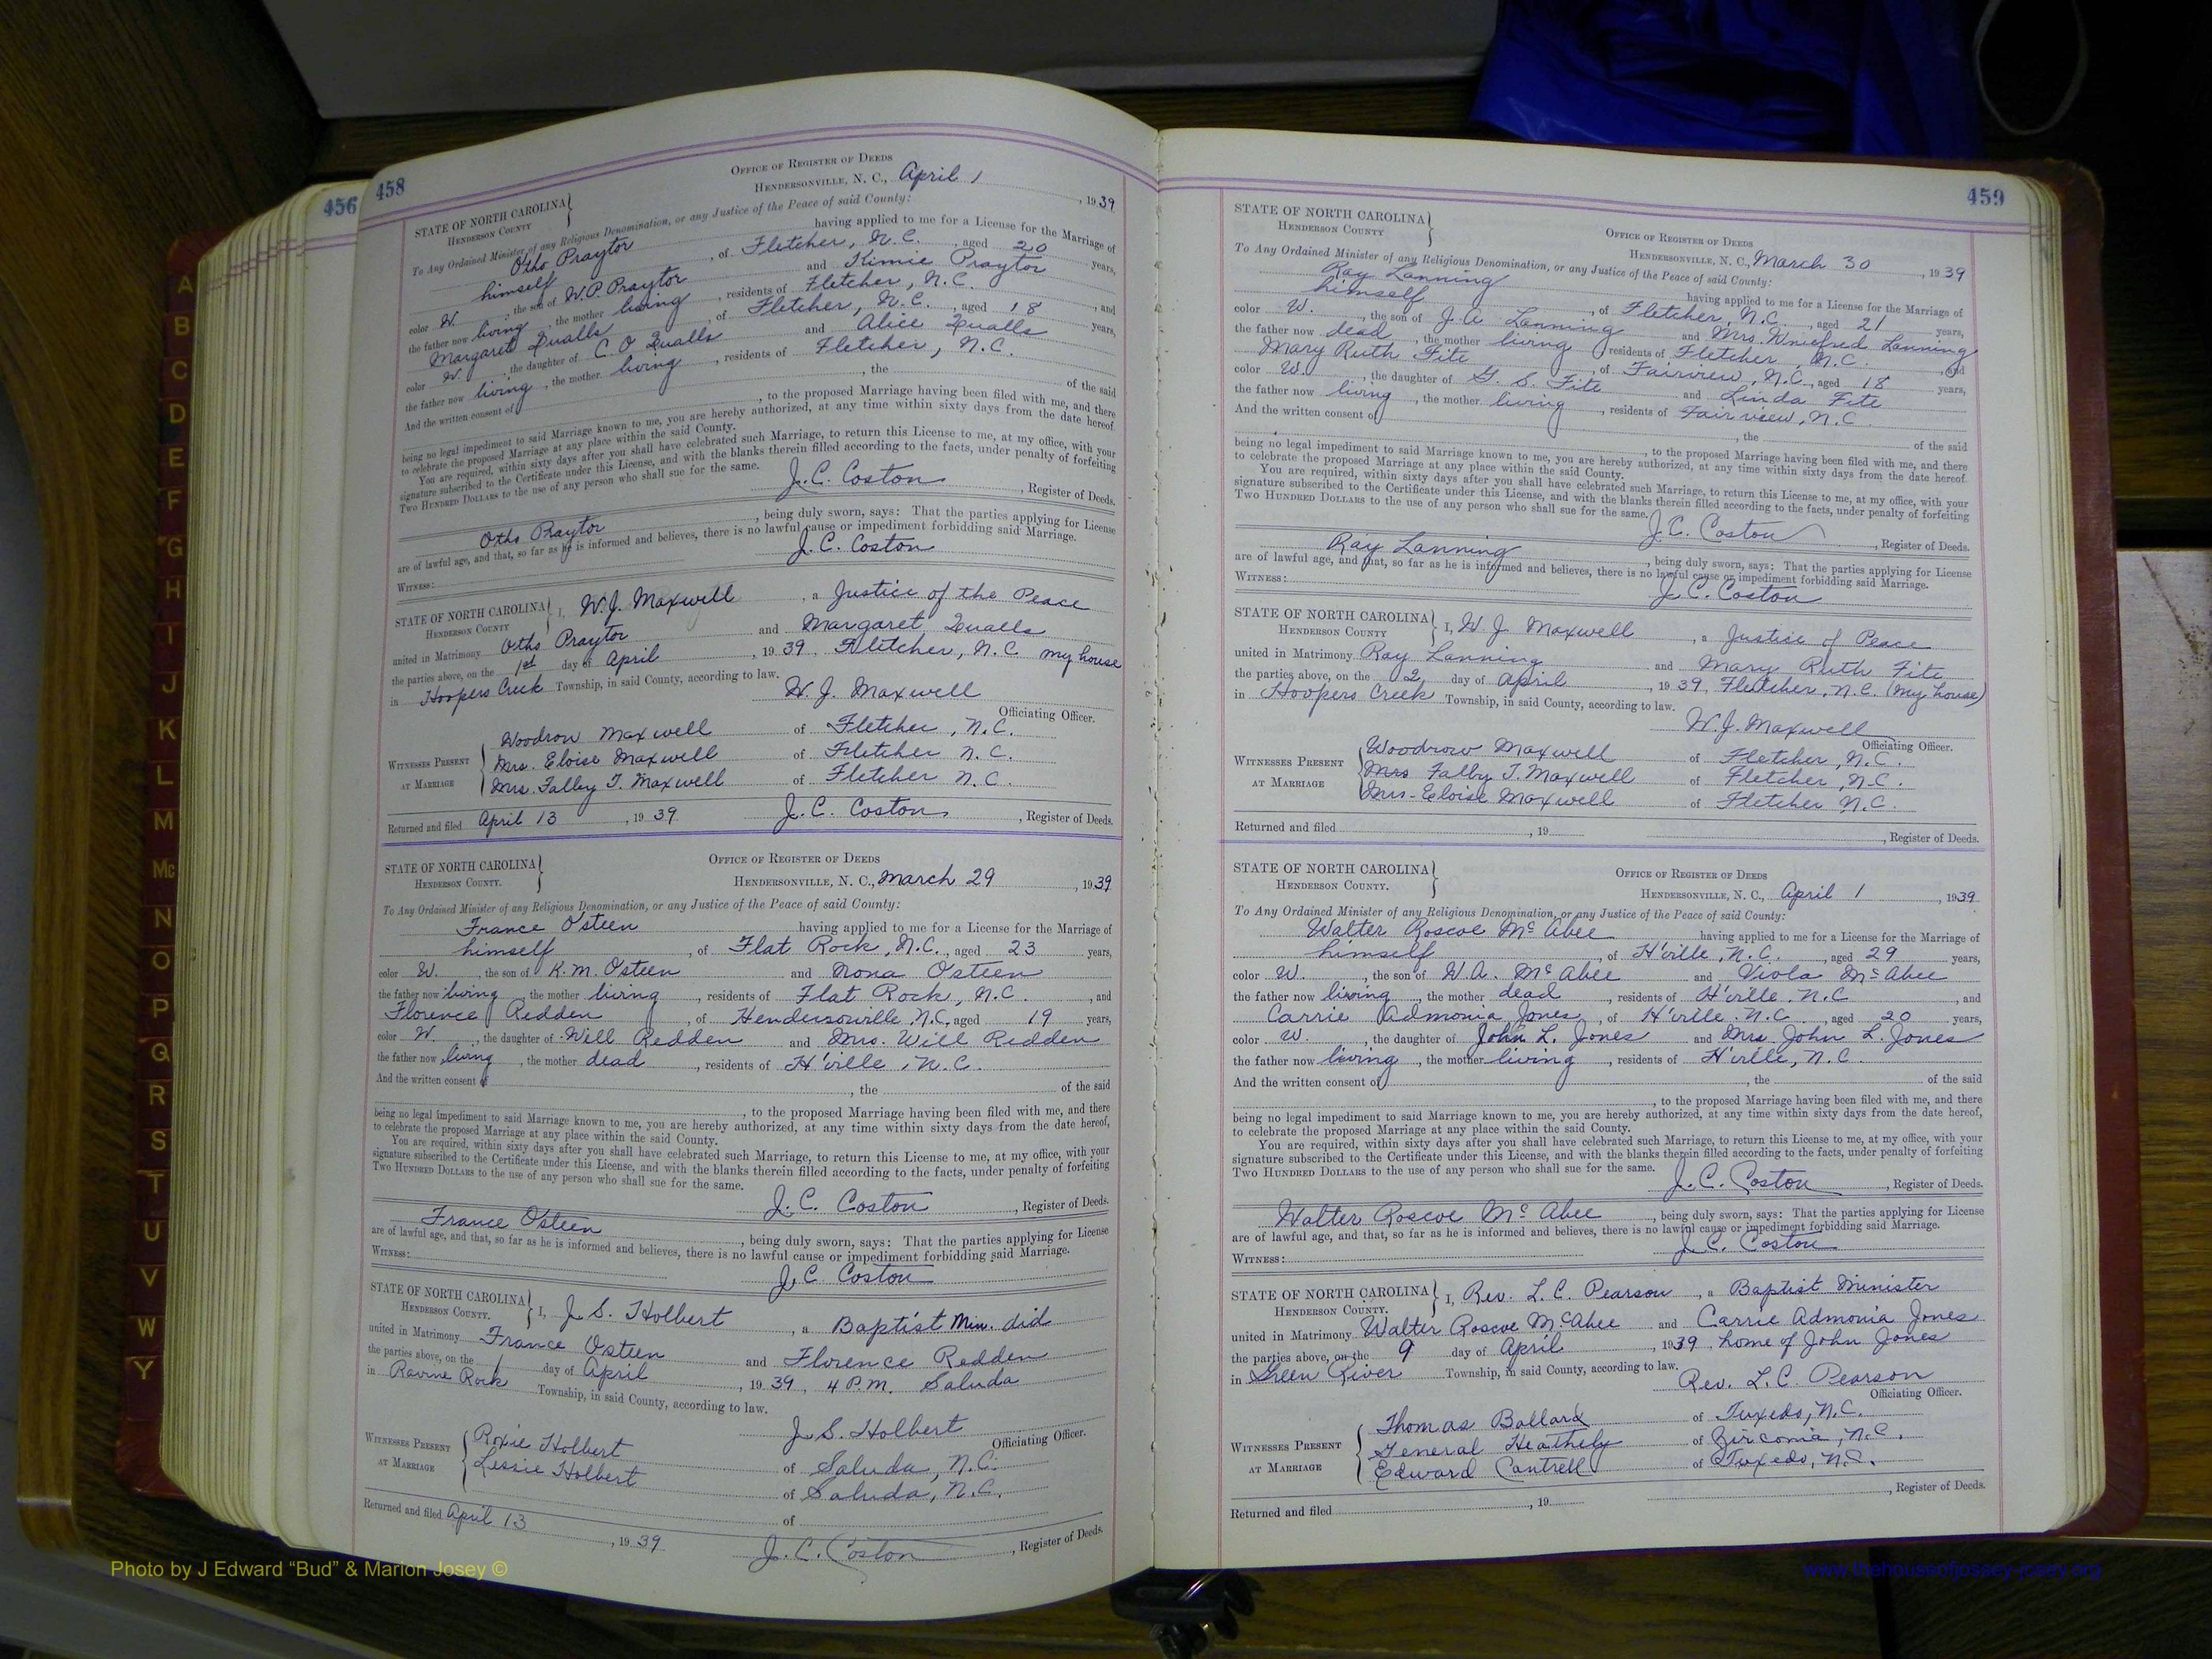 456
458
OFFICE OF REGISTER OF DEEDS
HENDERSONVILLE, N. C., April 1, 1939
STATE OF NORTH CAROLINA
HENDERSON COUNTY
To Any Ordained Minister of any Religious Denomination, or any Justice of the Peace of said County:
Otho Praytor having applied to me for a License for the Marriage of
himself, of Fletcher, N.C., aged 20 years,
color W., the son of W.P. Praytor and Kimie Praytor
the father now living, the mother living, residents of Fletcher, N.C., and
Margaret Qualls of Fletcher, N.C., aged 18 years,
color W., the daughter of C.O Qualls and Alice Qualls
the father now living, the mother living, residents of Fletcher, N.C.
And the written consent of , the of the said
, to the proposed Marriage having been filed with me, and there
being no legal impediment to said Marriage known to me, you are hereby authorized, at any time within sixty days from the date hereof,
to celebrate the proposed Marriage at any place within the said County.
You are required, within sixty days after you shall have celebrated such Marriage, to return this License to me, at my office, with your
signature subscribed to the Certificate under this License, and with the blanks therein filled according to the facts, under penalty of forfeiting
TWO HUNDRED DOLLARS to the use of any person who shall sue for the same.
J.C. Coston, Register of Deeds.
Otho Praytor, being duly sworn, says: That the parties applying for License
are of lawful age, and that, so far as he is informed and believes, there is no lawful cause or impediment forbidding said Marriage.
WITNESS: J.C. Coston
STATE OF NORTH CAROLINA I, W.J. Maxwell, a Justice of the Peace
HENDERSON COUNTY
united in Matrimony Otho Praytor and Margaret Qualls
the parties above, on the 1st day of April, 1939. Fletcher, N.C. my house
in Hoopers Creek Township, in said County, according to law.
W. J. Maxwell
Officiating Officer.
WITNESSES PRESENT AT MARRIAGE
Woodrow Maxwell of Fletcher, N.C.
Mrs. Eloise Maxwell of Fletcher N.C.
Mrs. Falby T. Maxwell of Fletcher N.C.
Returned and filed April 13, 1939 J.C. Coston, Register of Deeds.
STATE OF NORTH CAROLINA
HENDERSON COUNTY.
OFFICE OF REGISTER OF DEEDS
HENDERSONVILLE, N. C., March 29, 1939
To Any Ordained Minister of any Religious Denomination, or any Justice of the Peace of said County:
France Osteen having applied to me for a License for the Marriage of
himself, of Flat Rock, N.C., aged 23 years,
color W., the son of K.M. Osteen and Nona Osteen
the father now living, the mother living, residents of Flat Rock, N.C., and
Florence Redden, of Hendersonville, N.C. aged 19 years,
color W., the daughter of Will Redden and Mrs. Will Redden
the father now living, the mother dead, residents of H'ville, N.C.
And the written consent of , the of the said
, to the proposed Marriage having been filed with me, and there
being no legal impediment to said Marriage known to me, you are hereby authorized, at any time within sixty days from the date hereof,
to celebrate the proposed Marriage at any place within the said County.
You are required, within sixty days after you shall have celebrated such Marriage, to return this License to me, at my office, with your
signature subscribed to the Certificate under this License, and with the blanks therein filled according to the facts, under penalty of forfeiting
TWO HUNDRED DOLLARS to the use of any person who shall sue for the same.
J.C. Coston, Register of Deeds.
France Osteen, being duly sworn, says: That the parties applying for License
are of lawful age, and that, so far as he is informed and believes, there is no lawful cause or impediment forbidding said Marriage.
WITNESS: J.C Coston
STATE OF NORTH CAROLINA I, J.S. Holbert, a Baptist Min. did
HENDERSON COUNTY.
united in Matrimony France Osteen and Florence Redden
the parties above, on the 1 day of April, 1939, 4 P.M. Saluda
in Ravine Rock Township, in said County, according to law.
J.S. Holbert
Officiating Officer.
WITNESSES PRESENT AT MARRIAGE
Roxie Holbert of Saluda, N.C.
Lessie Holbert of Saluda, N.C.
of
Returned and filed April 13, 1939 J.C. Coston, Register of Deeds.
459
STATE OF NORTH CAROLINA
HENDERSON COUNTY
OFFICE OF REGISTER OF DEEDS
HENDERSONVILLE, N. C., March 30, 1939
To Any Ordained Minister of any Religious Denomination, or any Justice of the Peace of said County:
Ray Lanning having applied to me for a License for the Marriage of
himself, of Fletcher, N.C., aged 21 years,
color W., the son of J.A. Lanning and Mrs. Winefred Lanning
the father now dead, the mother living residents of Fletcher, N.C., and
Mary Ruth Fite, of Fairview, N.C., aged 18 years,
color W., the daughter of G.S. Fite and Linda Fite
the father now living, the mother living, residents of Fairview, N.C.
And the written consent of , the of the said
, to the proposed Marriage having been filed with me, and there
being no legal impediment to said Marriage known to me, you are hereby authorized, at any time within sixty days from the date hereof,
to celebrate the proposed Marriage at any place within the said County.
You are required, within sixty days after you shall have celebrated such Marriage, to return this License to me, at my office, with your
signature subscribed to the Certificate under this License, and with the blanks therein filled according to the facts, under penalty of forfeiting
TWO HUNDRED DOLLARS to the use of any person who shall sue for the same.
J.C. Coston, Register of Deeds.
Ray Lanning, being duly sworn, says: That the parties applying for License
are of lawful age, and that, so far as he is informed and believes, there is no lawful cause or impediment forbidding said Marriage.
WITNESS: J.C. Coston
STATE OF NORTH CAROLINA I, W.J. Maxwell, a Justice of Peace
HENDERSON COUNTY
united in Matrimony Ray Lanning and Mary Ruth Fite
the parties above, on the 2 day of April, 1939, Fletcher, N.C. (my house)
in Hoopers Creek Township, in said County, according to law.
W.J. Maxwell
Officiating Officer.
WITNESSES PRESENT AT MARRIAGE
Woodrow Maxwell of Fletcher, N.C.
Mrs Falby T. Maxwell of Fletcher, N.C.
Mrs. Eloise Maxwell of Fletcher N.C.
Returned and filed , 19 , Register of Deeds.
STATE OF NORTH CAROLINA
HENDERSON COUNTY.
OFFICE OF REGISTER OF DEEDS
HENDERSONVILLE, N. C., April 1, 1939.
To Any Ordained Minister of any Religious Denomination, or any Justice of the Peace of said County:
Walter Roscoe McAbee having applied to me for a License for the Marriage of
himself, of H'ville, N.C., aged 29 years,
color W., the son of W.A. McAbee and Viola McAbee
the father now living, the mother dead, residents of H'ville, N.C, and
Carrie Admonia Jones, of H'ville, N.C., aged 20 years,
color W., the daughter of John L. Jones and Mrs. John L. Jones
the father now living, the mother living, residents of H'ville, N.C.
And the written consent of , the of the said
, to the proposed Marriage having been filed with me, and there
being no legal impediment to said Marriage known to me, you are hereby authorized, at any time within sixty days from the date hereof,
to celebrate the proposed Marriage at any place within the said County.
You are required, within sixty days after you shall have celebrated such Marriage, to return this License to me, at my office, with your
signature subscribed to the Certificate under this License, and with the blanks therein filled according to the facts, under penalty of forfeiting
TWO HUNDRED DOLLARS to the use of any person who shall sue for the same.
J.C. Coston, Register of Deeds.
Walter Roscoe McAbee, being duly sworn, says: That the parties applying for License
are of lawful age, and that, so far as he is informed and believes, there is no lawful cause or impediment forbidding said Marriage.
WITNESS: J.C. Coston
STATE OF NORTH CAROLINA I, Rev. L.C. Pearson, a Baptist Minister
HENDERSON COUNTY.
united in Matrimony Walter Roscoe McAbee and Carrie Admonia Jones
the parties above, on the 9 day of April, 1939, home of John Jones
in Green River Township, in said County, according to law.
Rev. L.C. Pearson
Officiating Officer.
WITNESSES PRESENT AT MARRIAGE
Thomas Ballard of Tuxedo, N.C.
General Heathely of Zirconia, N.C.
Edward Cantrell of Tuxedo, N.C.
Returned and filed , 19 , Register of Deeds.
A
B
C
D
E
F
G
H
I
J
K
L
M
Mc
N
O
P
Q
R
S
T
U
V
W
Y
Photo by J Edward “Bud” & Marion Josey ©
www.thehouseofjossey-josey.org